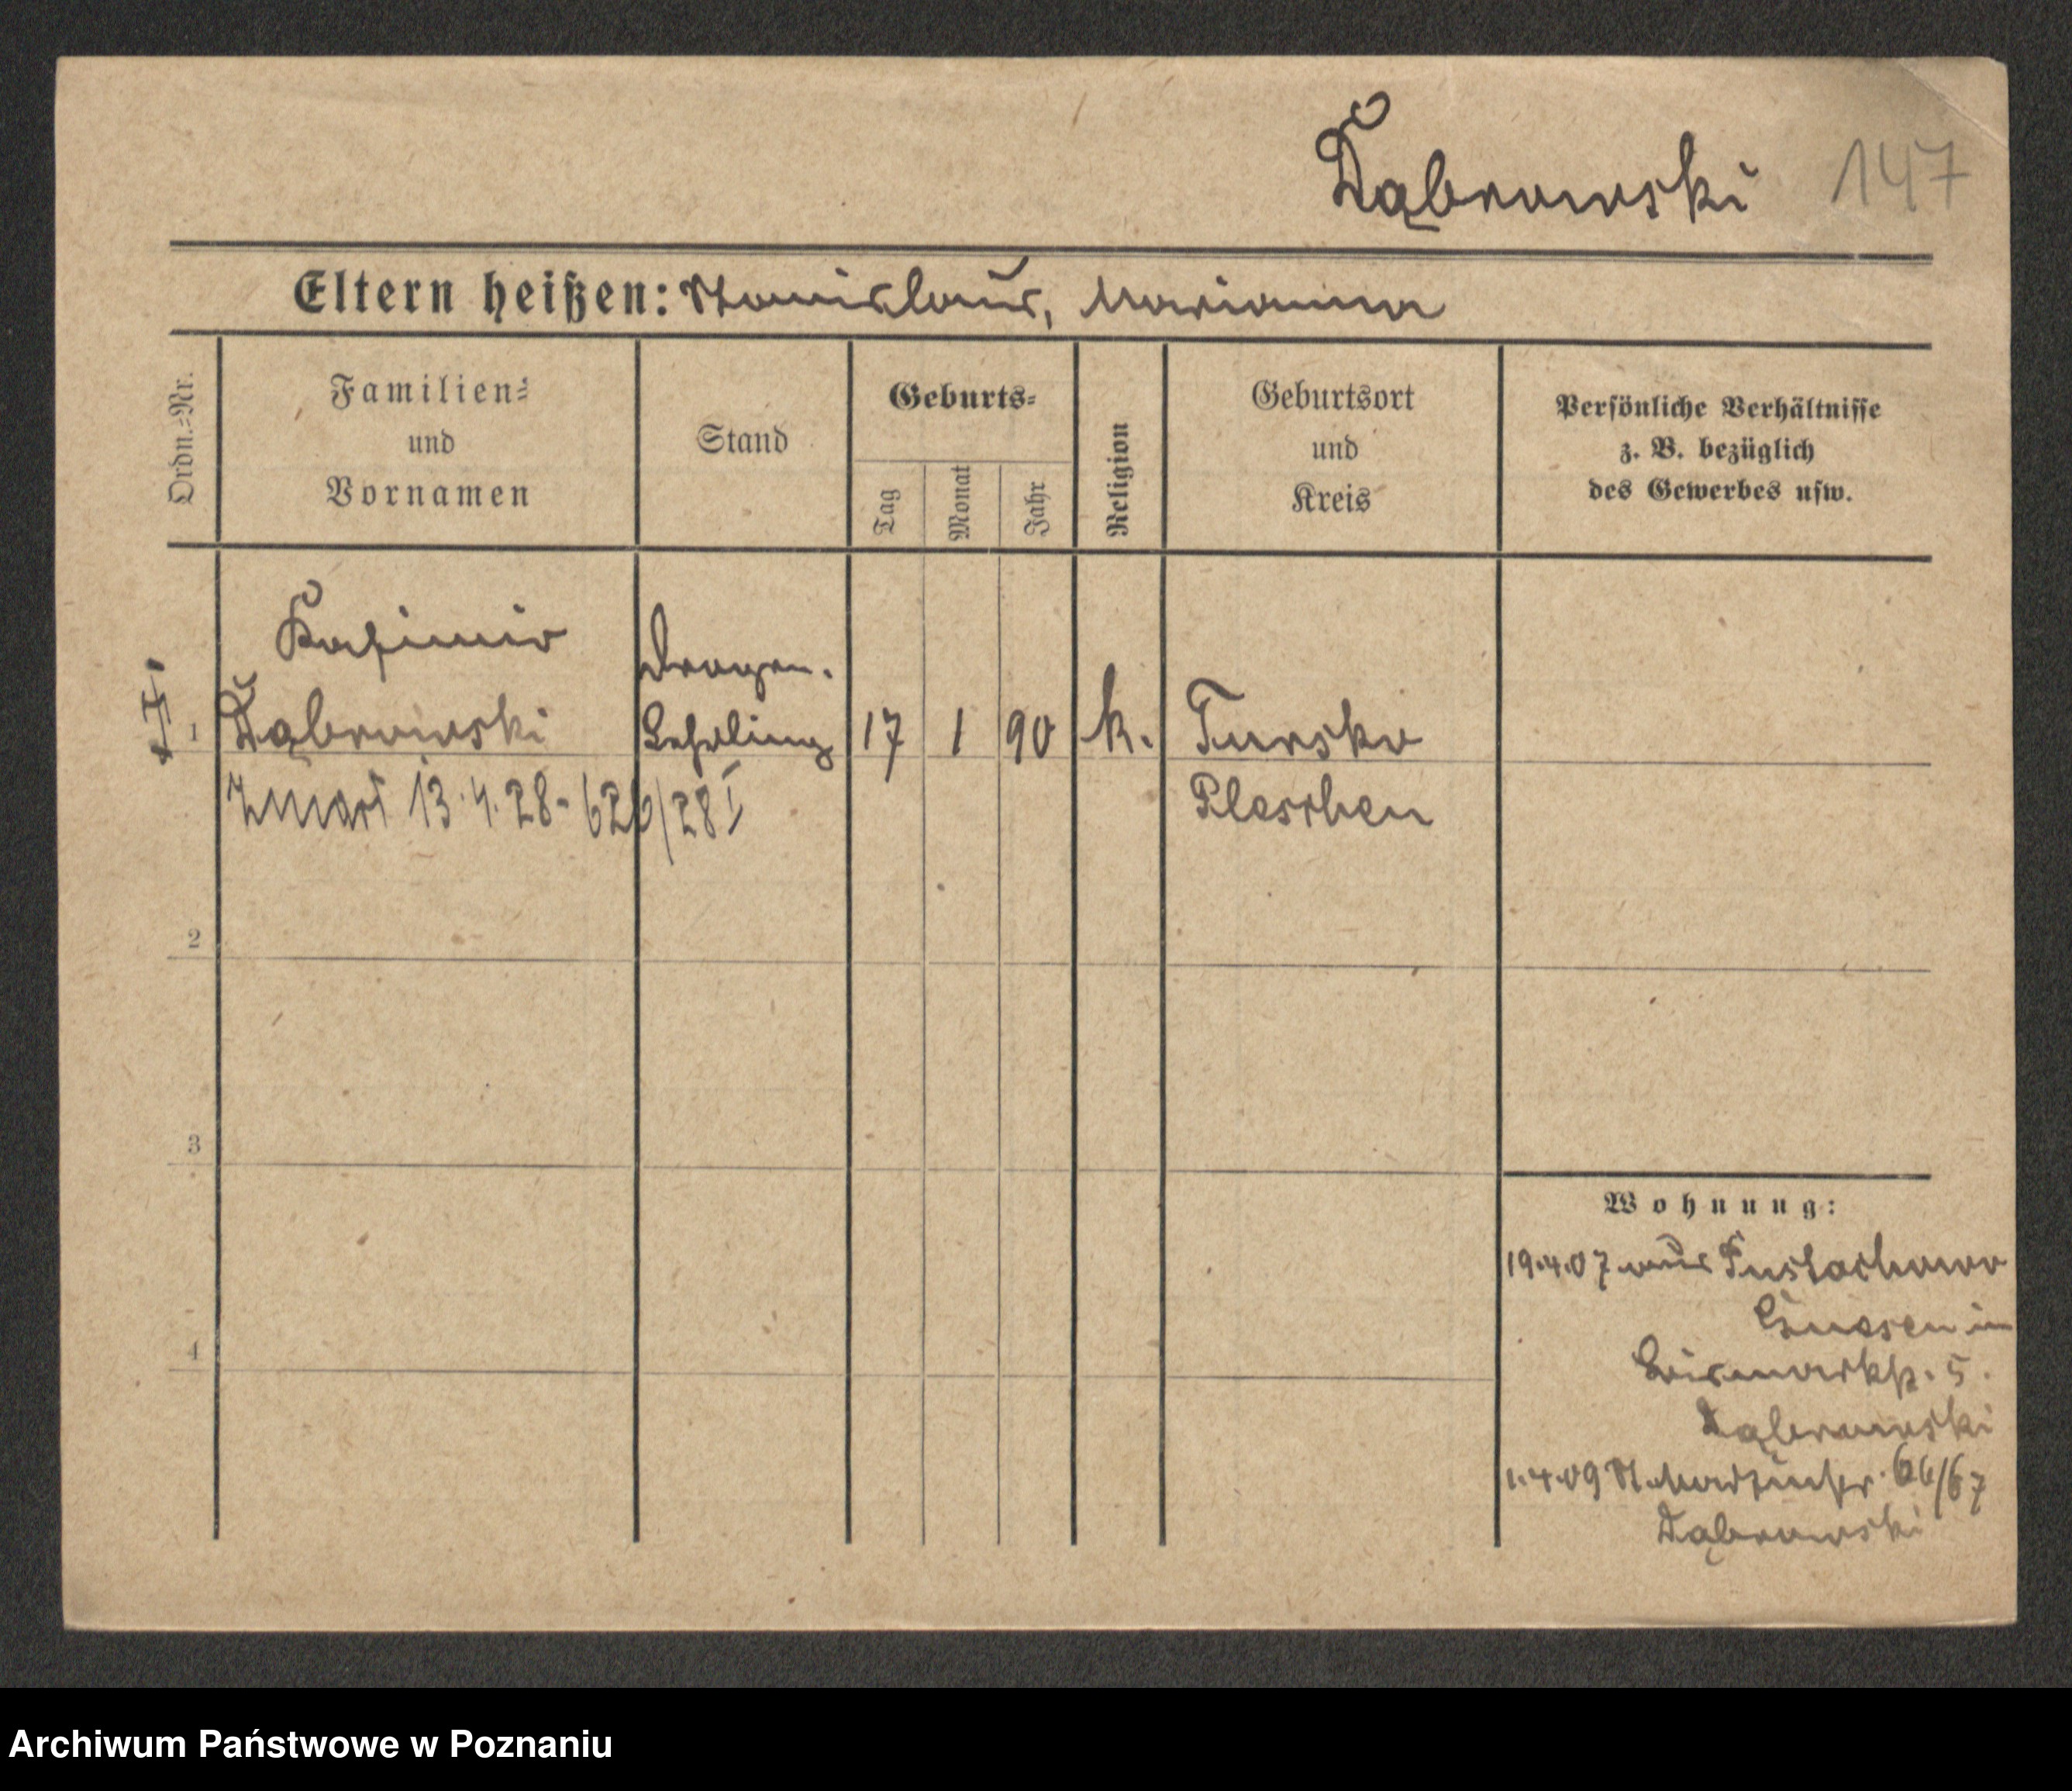 Dąbrowski 147
Eltern heißen: Stanislaus, Marianna
Ordn.-Nr.
Familien-
und
Vornamen
Stand
Geburts-
Tag
Monat
Jahr
Religion
Geburtsort
und
Kreis
Persönliche Verhältnisse
z. B. bezüglich
des Gewerbes usw.
Kasimir
Drogen.
1 Dąbrowski Lehrling 17 1 90 k. Tursko
Zmarł 13.4.28 - 626/28 I Pleschen
2
3
Wohnung:
19.4.07 aus Pustachowo
Gnesen in
4
Bismarckstr. 5.
Dąbrowski
1.4.09 St. Martinstr. 66/67
Dąbrowski
Archiwum Państwowe w Poznaniu